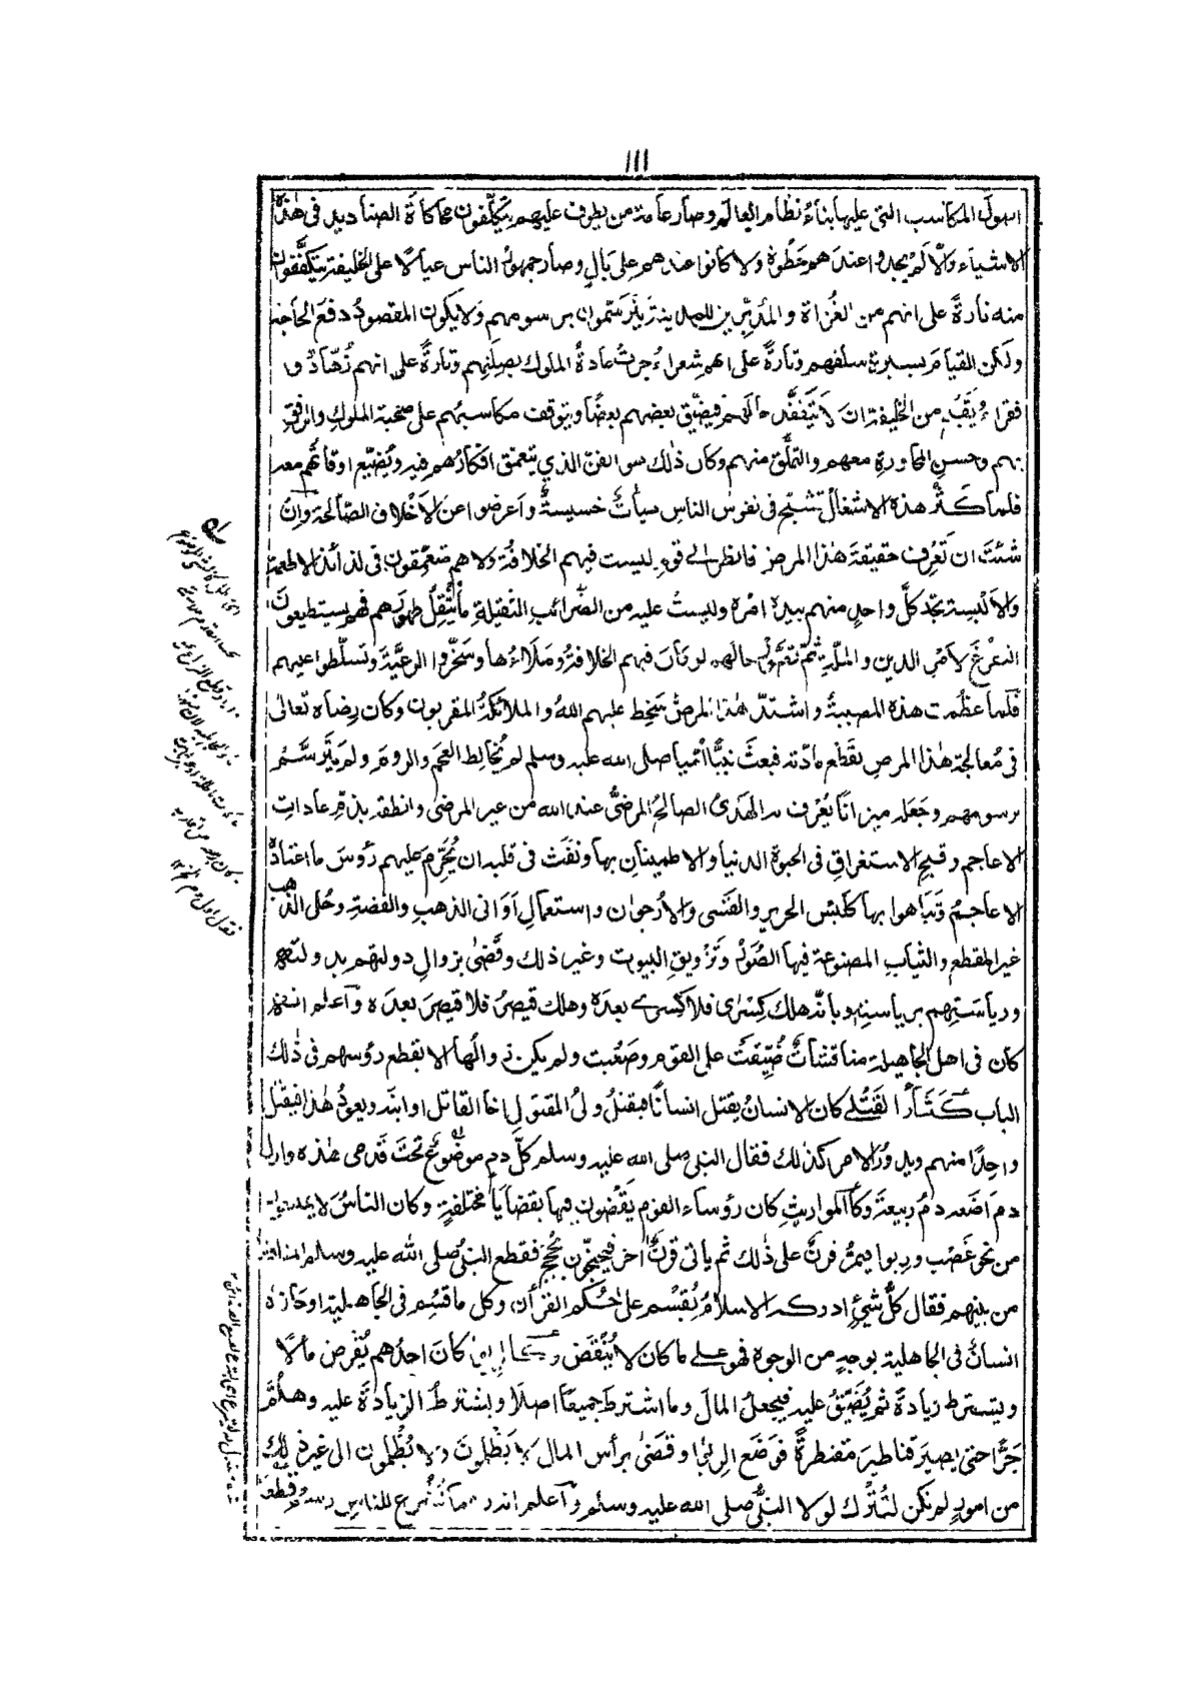 ١١١
اصول المكاسب التى عليها بناءُ نظام العالم وصار عامة من يطوف عليهم يتكلّفون محاكاة الصناديد فى هٰذهٖ
الاشياء وَاِلّا لَم يجدوا عندهم حَظوة ولا كانوا عندهم على بَالٍ وصار جمهورُ الناس عيالًا على الخليفة يتكفّفون
منه تارةً على انهم من الغُزاة والمُدبِّرين للمدينة يترسّمون برسومهم ولا يكون المقصودُ دفعَ الحاجة
ولكن القيام بسيرة سلفهم وتارةً على انهم شعراءُ جرتْ عادةُ الملوك بصِلتِهم وتارةً على انهم زُهّادٌ و
فقراءُ يَقبُح من الخليفة ان لا يَتفقّد حالَهم فيُضيّق بعضهم بعضًا ويتوقف مكاسبُهم على صُحبة الملوك والرفق
بهم وحُسنِ المحاورة معهم والتملُّق منهم وكان ذٰلك هو الفن الذى يتعمّق افكارُهم فيه ويُضيّع اوقاتُهم معه
فلما كَثُر هذه الاشغالُ تشبّح فى نفوس الناس هيأتٌ خسيسةٌ واَعرضوا عن الاَخلاق الصّالحة وَاِن
شئتَ ان تَعرِف حقيقةَ هٰذا المرض فانظر الى قومٍ ليست فيهم الخلافة ولا هم متعمّقون فى لذائذ الاطعمة
والاَلبسة تجد كلَّ واحدٍ منهم بيده امره وليستْ عليه من الضّرائب الثقيلة ما يُثقِلُ ظهورَهم فهم يستطيعون
التفرّغ لاَمْرِ الدين والملّة ثمّ تصوَّرْ حالهم لو كان فيهم الخلافةُ ومَلاءُها وسَخّروا الرعيّةَ وتسلّطوا عليهم
فلما عظُمت هذه المصيبةُ واشتدّ هٰذا المرضُ سَخِط عليهم اللهُ والملائكةُ المقربون وكان رِضاه تعالٰى
فى مُعالجة هٰذا المرض بقَطْع مادّته فبعثَ نبيًّا اُمّيًا صلى الله عليه وسلم لم يُخالِط العجم والروم ولم يَترسَّم
برسومهم وجعله ميزانًا يُعرَف به الهَدىُ الصالح المرضىُّ عند الله من غير المرضىّ وانطقه بذمّ عادات
الاعاجم وقبحِ الاستغراقِ فى الحيوة الدنيا والاطمينانِ بها ونَفَث فى قلبه ان يُحرِّم عليهم رُؤسَ ما اعتادهُ
الاعاجمُ وتَباهوا بها كلبس الحرير والقَسِّى والاُرجوان واستعمالِ اَوانى الذهب والفضة وحُلى الذهب
غير المقطع والثياب المصنوعة فيها الصُّوَرُ وتَزويقِ البيوت وغير ذلك وقضٰى بزوالِ دولتهم بدولته
ورياستِهم برياسته وبانّه هلك كِسرٰى فلا كِسرٰى بعده وهلك قيصرُ فلا قيصرَ بعده وَاعلم انه
كان فى اهل الجاهلية مناقشاتٌ ضَيَّقتْ على القوم وصَعُبت ولم يكن زوالُها الا بقطع رؤسهم فى ذٰلك
الباب كثأر القتلى كان الانسانُ يقتل انسانًا فيقتلُ ولىُ المقتول اخا القاتل او ابنَه ويعودُ هٰذا فيقتل
واحدًا منهم ويدورُ الامر كذلك فقال النبى صلى الله عليه وسلم كلُّ دمٍ موضوعٌ تحتَ قدمى هٰذه واول
دم اَضعه دمُ ربيعة وكالمواريث كان رؤساء القوم يَقْضون فيها بقضايا مختلفةٍ وكان الناسُ لا يمتنعون
من نحو غصْب وربوا فيمرُّ قرنٌ على ذٰلك ثم يأتى قرنٌ اٰخر فيحتجّون بحُجج فقطع النبىُ صلى الله عليه وسلم المناقشةَ
من بينهم فقال كلُّ شئٍ ادركه الاسلامُ يُقسَم على حُكم القراٰن وكل ما قُسِم فى الجاهلية او حازه
انسانٌ فى الجاهلية بوجهٍ من الوجوه فهو على ما كان لا يُنقَض وكالربوا كان احدُهم يُقرِض مالًا
ويشترط زيادةً ثم يُضَيّقُ عليه فيجعلُ المالَ وما اشترط جميعًا اصلًا ويشترطُ الزيادةَ عليه وهلُمّ
جَرًّا حتى يصيرَ قناطيرَ مقنطرةً فوَضع الرِبٰوا وقضٰى برأس المال لا يَظلِمون ولا يُظلَمون الى غير ذلك
من امورٍ لم تكن لتُترَك لولا النبىُّ صلى الله عليه وسلم وَاعلم انه ربما يُشرع للناس رسمٌ لقطعِ